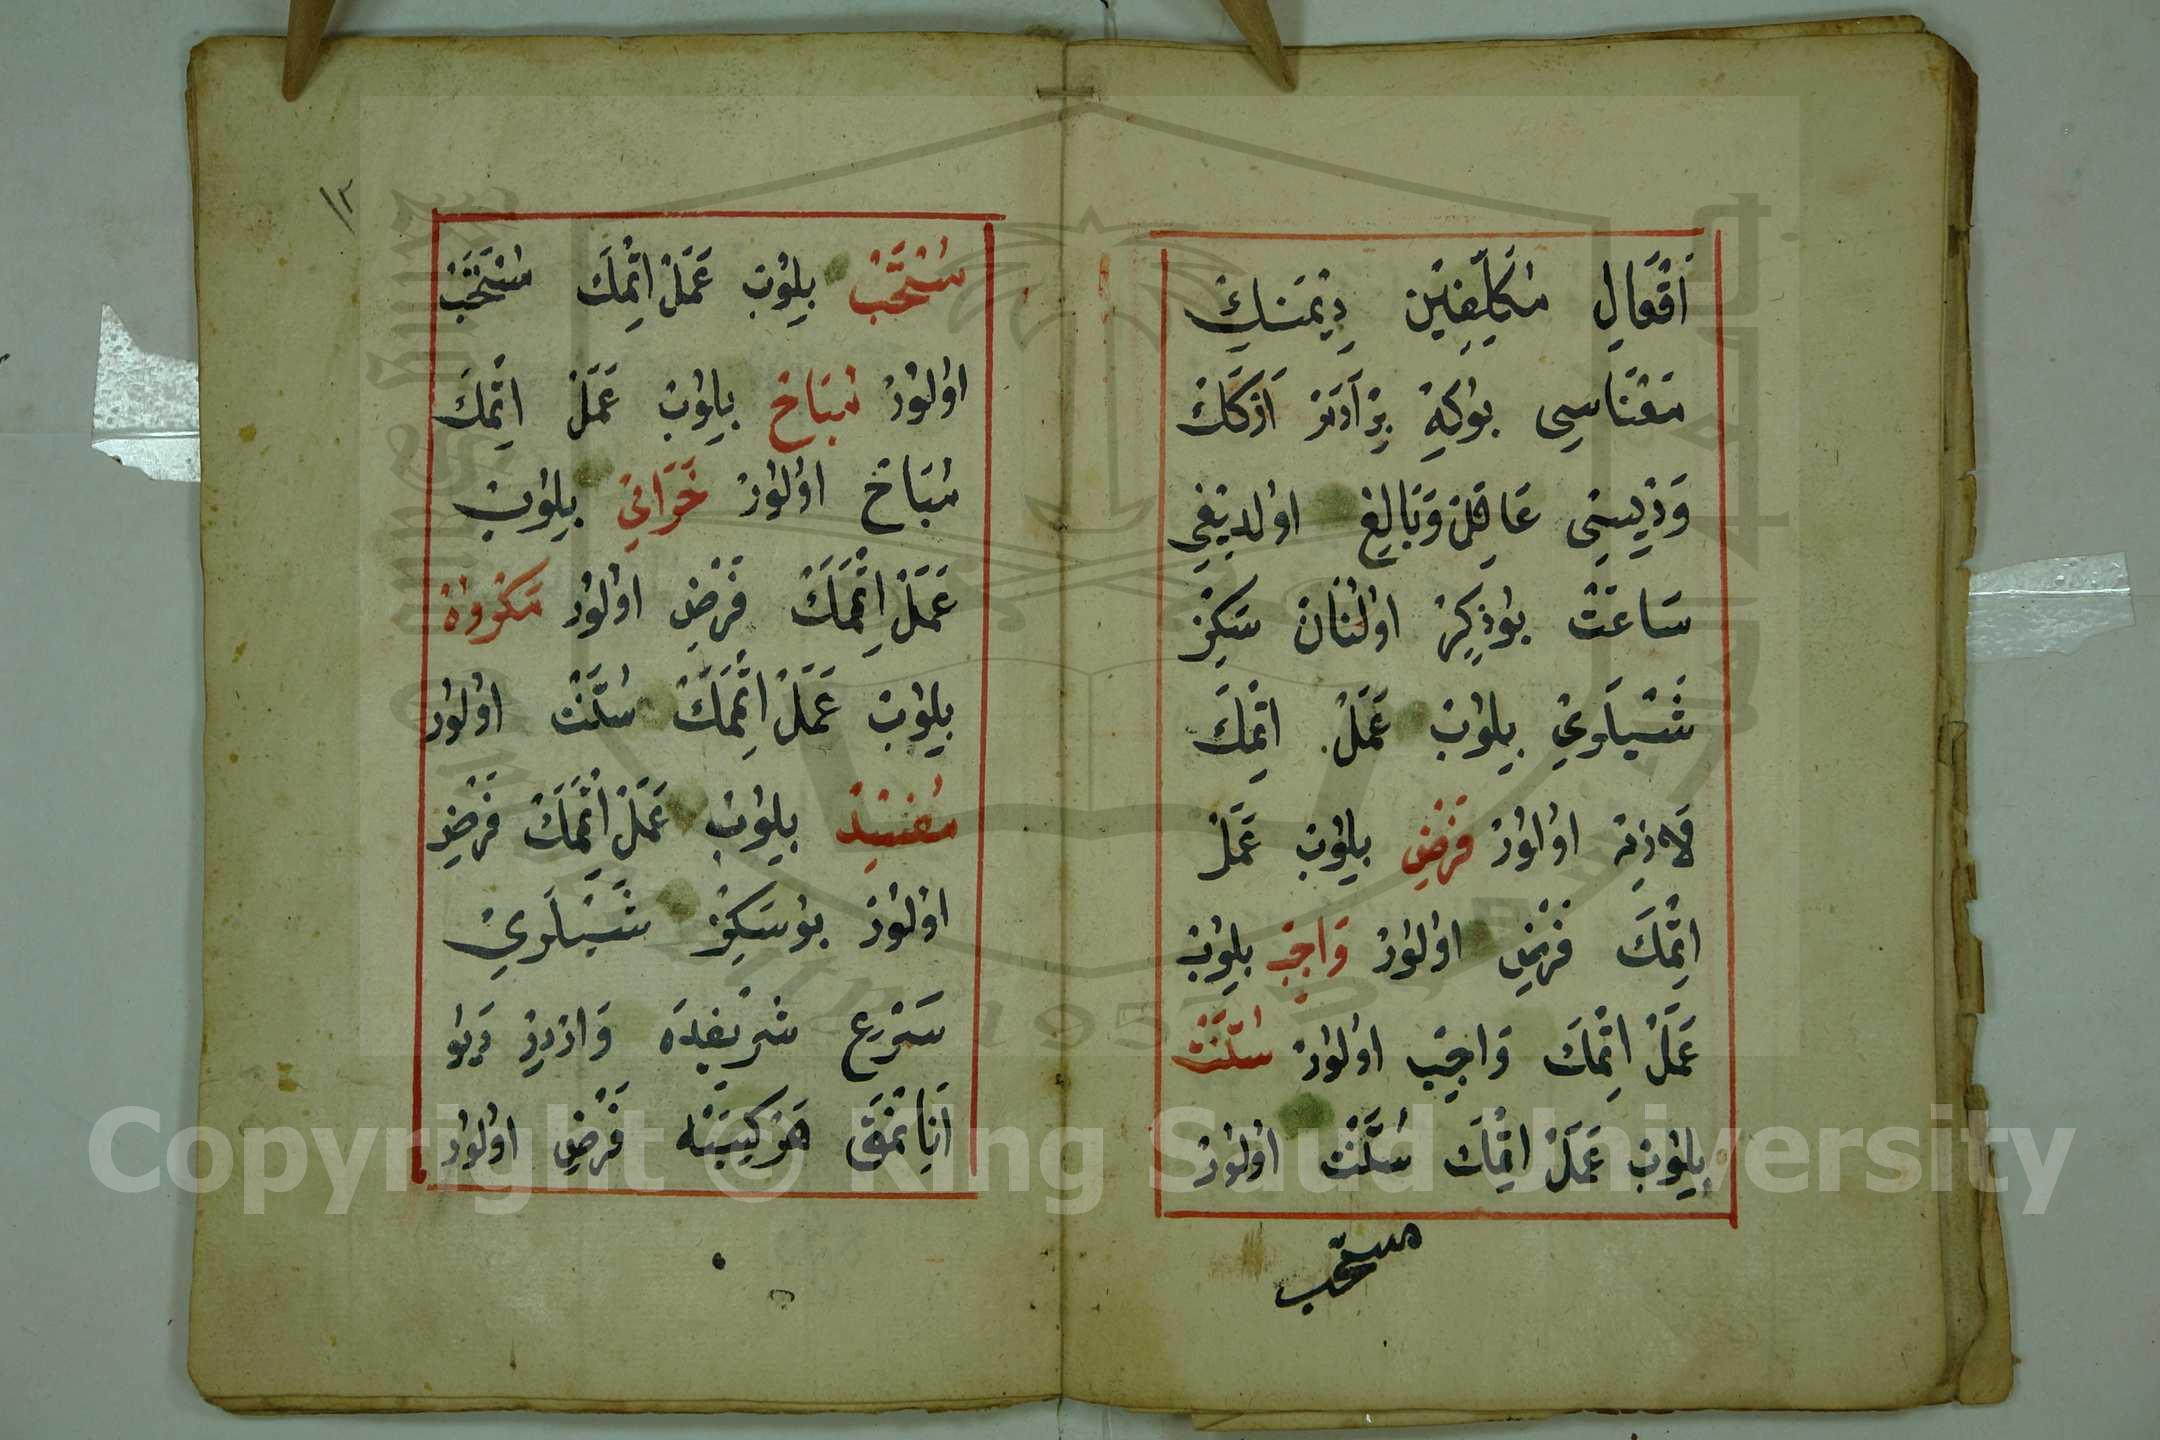 اَفْعَالِ مُكَلِّفِينْ دِيْمَنِكْ
مَعْنَاسِى بُوكِهْ بِرْ آدَمْ اَرْكَكْ
وَدِيشِى عَاقِلْ وَبَالِغْ اولديغى
سَاعَتْ بُوذِكِرْ اوُلُنَانْ سَكِزْ
شَيْلَرِى بِيلُوبْ عَمَلْ اِتْمِكَ
لَازِمْ اوُلُورْ فَرْضِ بِيلُوبْ عَمَلْ
اِتْمِكَ فَرْضِ اوُلُورْ وَاجِبْ بِيلُوبْ
عَمَلْ اِتْمِكَ وَاجِبْ اوُلُورْ سُنَّتْ
بِيلُوبْ عَمَلْ اِتْمِكَ سُنَّتْ اوُلُورْ
مستحب
١٣
مُسْتَحَبْ بِيلُوبْ عَمَلْ اِتْمِكَ مُسْتَحَبْ
اوُلُورْ مُبَاحْ بِيلُوبْ عَمَلْ اِتْمِكَ
مُبَاحْ اوُلُورْ حَرَامِى بِيلُوبْ
عَمَلْ اِتْمَمَكْ فَرْضِ اوُلُورْ مَكْرُوهْ
بِيلُوبْ عَمَلْ اِتْمَمَكْ سُنَّتْ اوُلُورْ
مُفْسِدْ بِيلُوبْ عَمَلْ اِتْمَمَكْ فَرْضِ
اوُلُورْ بُوسَكِزْ شَيْلَرِى
شَرْعِ شَرِيفِدَه وَارْدِرْ دَيُو
اِنَانْمَقْ هَرْكِسَيَه فَرْضِ اوُلُورْ
Copyright © King Saud University
1957